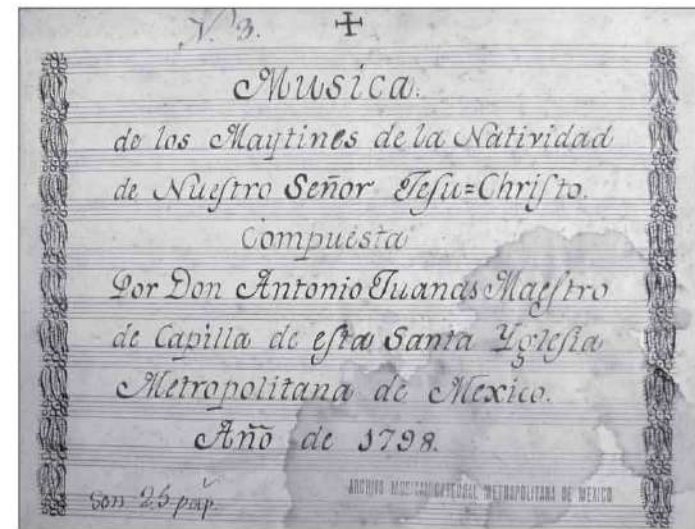 N. 3. +
Musica.
de los Maytines de la Natividad
de Nuestro Señor Jesu=Christo.
Compuesta
Por Don Antonio Juanas Maestro
de Capilla de esta Santa Yglesia
Metropolitana de Mexico.
Año de 1798.
son 25 pap.
ARCHIVO MUSICAL CATEDRAL METROPOLITANA DE MEXICO